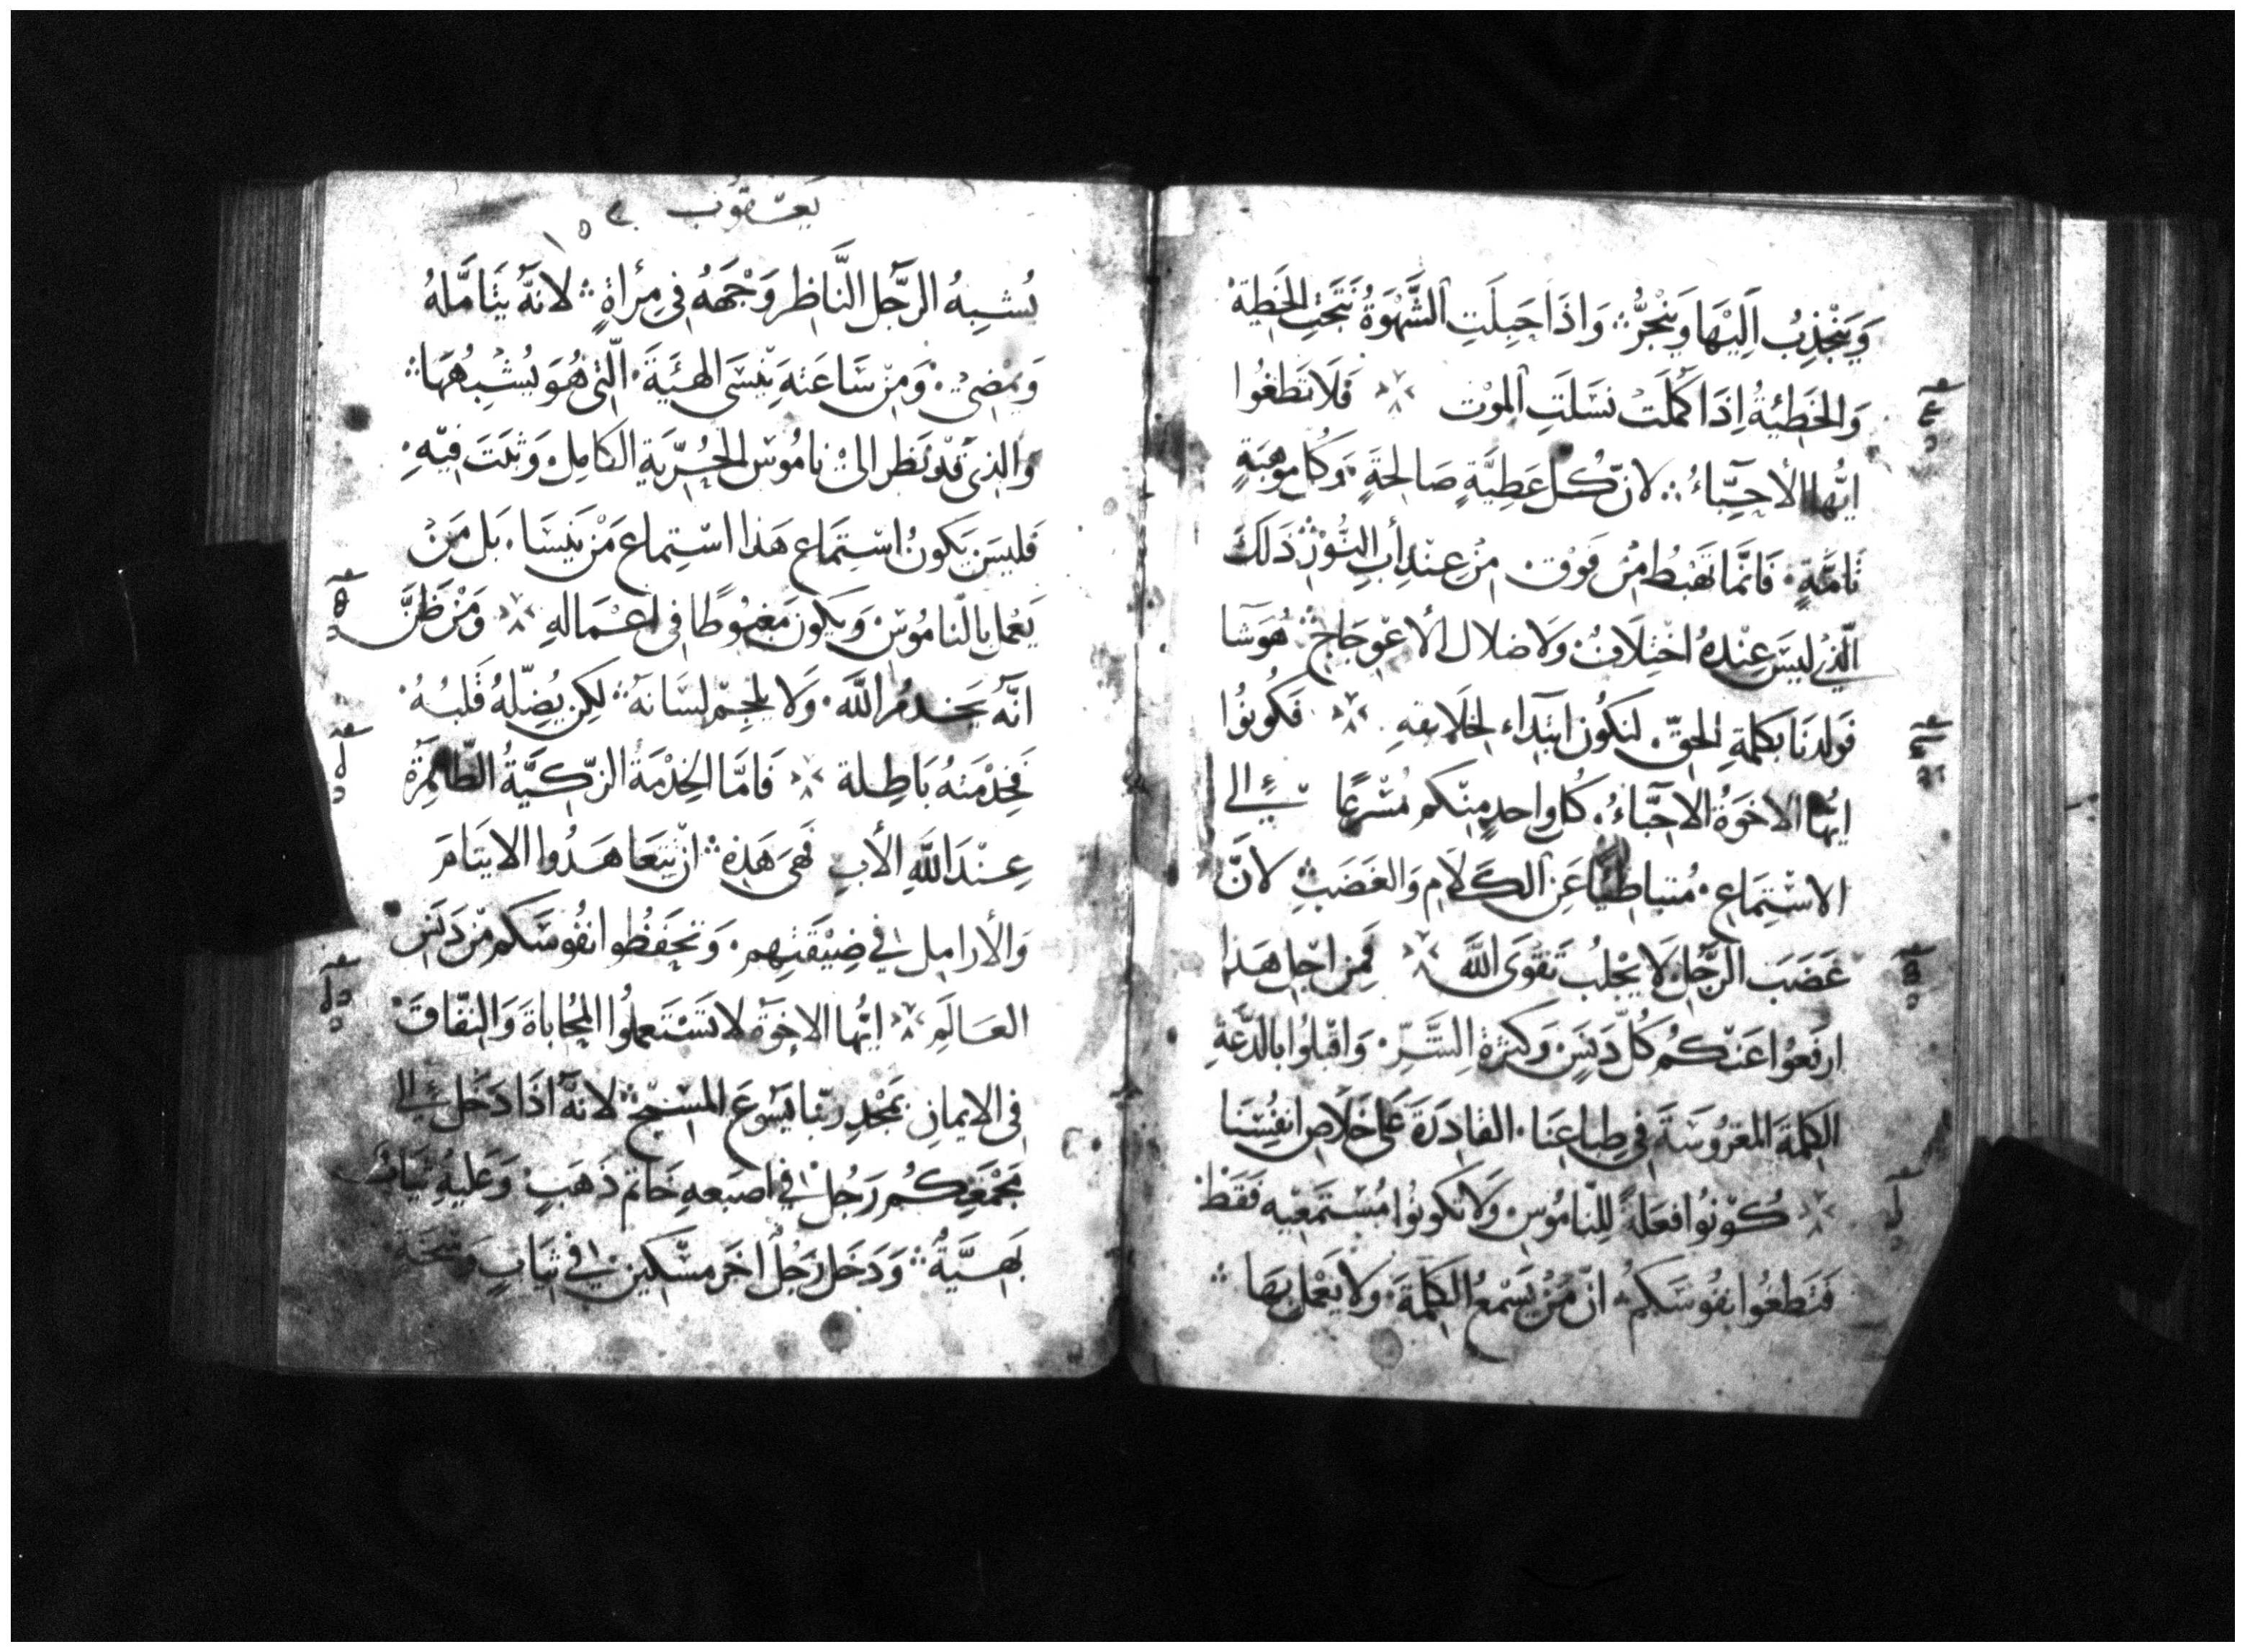 وَيَنْجَذِبُ اِلَيْهَا وَيَنْجَرُّ ∴ وَاذَا حَبِلَتِ الشَّهْوَةُ نَتَجَتِ الخَطِيّة
وَالخَطِيّةُ اِذَا كَمُلَتْ نَسَلَتِ المَوْت ※ فَلَا تَطغُوا
ايُّها الأحِبّاءُ ∴ لانّ كُلّ عَطِيَّةٍ صَالحَةٍ ۰ وَكُل موهَبَةٍ
تَامَّةٍ ۰ فَانَّمَا تَهبُطُ مِنْ فَوْق ۰ مِنْ عِنْدِ أبِ النُّوْرِ ∴ ذَلَكَ
الّذِي لَيسَ عِنْدهُ اخْتِلَافٌ وَلَا ضلال الأعوجَاجِ ∴ هُوَ شَا
فَولَدنَا بكلمةِ الحَقّ ۰ لنَكُون ابتِدَاء لخلَايقهِ ※ فَكُونُوا
ايُّهَا الاخوَةُ الاحِبَّاءُ ۰ كُل واحدٍ منكم مُسْرعًا فِي الى
الاسْتِمَاعِ ۰ مُتباطِئًا عَنِ الكَلَامِ وَالغَضَبِ ∴ لانَّ
غَضَبَ الرَّجُلِ لَا يَجْلبُ تَقْوَى اللهَ ※ فَمِن اجْلِ هَذا
ارفَعُوا عَنْكُم كُلّ دَنَسٍ وَكثرَةِ الشَّرِّ ۰ وَاقْبلُوا بالدَّعَةِ
الكلمَةَ المغرُوسَةَ فِي طِباعِنَا ۰ القادِرَةَ عَلَى خَلَاصِ انفُسِنَا
※ كُوْنُوا فعَلَةً لِلنّامُوسِ وَلَا تَكُونُوا مُسْتَمعيه فقَطْ
فَتَطغُوا نفُوسَكُم ∴ انّ مَنْ يَسْمعُ الكلِمَةَ ۰ وَلَا يَعْمَل بِهَا ∴
يَعقوب
يُشبِهُ الرَّجُل النَّاظِر وَجْهَهُ فى مِرأةٍ ∴ لانهُ يتَامَّلهُ
وَيَمْضِي ۰ وَمِنْ سَاعَتهِ يَنْسَى الهَيئَةَ ۰ الّتي هُوَ يُشْبِهُهَا ∴
وَالذِي قَدْ نَظَر الَىْ نامُوس الحُرّيةِ الكَامِلِ ۰ وَثبتَ فِيْهِ ۰
فَليسَ يَكونُ اسْتِمَاع هَذا اسْتِماع مَنْ يَنسَا ۰ بَل مَنْ
يَعْمل بالنّامُوسِ ۰ وَيَكون مَغبُوطًا فى اعْمَالهِ ※ وَمَنْ ظَنَّ
انَّهُ يَخدمُ اللهَ ۰ وَلَا يُلجِمُ لِسَانَهُ ∴ لكِن يُضِلّهُ قَلبُهُ ۰
فَخِدْمَتهُ بَاطِلة ※ فَامَّا الخِدْمَةُ الزّكيَّةُ الطّاهِرَة
عِنْدَ اللهِ الأبِ فَهيَ هَذِهِ ∴ انْ تَتَعَاهَدُوا الايتَامَ
وَالأرامِل فِي ضِيْقَتِهِم ۰ وَتحفَظُوا نفُوسَكم مِنْ دَنَسِ
العَالَمِ ※ ايُّها الاخوَةُ لا تَسْتَعملُوا المحُاباةَ وَالنّفَاقَ
فى الايمانِ بمَجْدِ ربّنا يَسُوعَ المَسْيحِ ∴ لانهُ اذَا دَخَل الى
مَجْمَعِكُم رَجُلٌ فِي اصبَعهِ خَاتم ذَهَبٍ وَعَليهِ ثيَابٌ
بَهيَّةٌ ∴ وَدَخَل رَجُلٌ اخَر مسْكين ۰ فِي ثيَابٍ وَسخَة